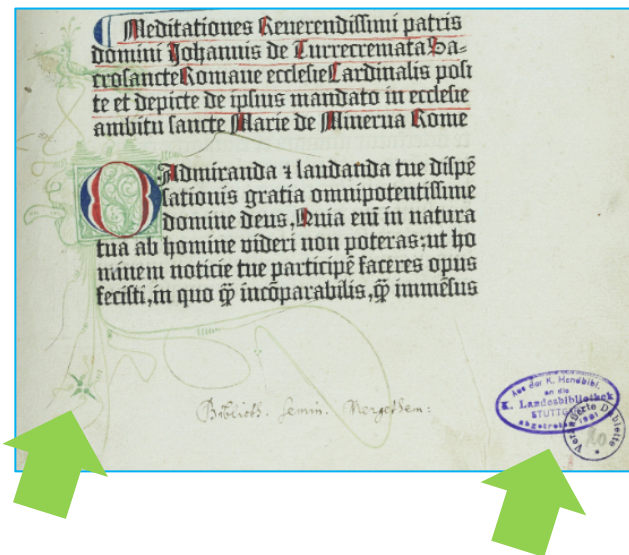 Meditationes Reuerendissimi patris
domini Johannis de Turrecremata Sa=
crosancte Romane ecclesie Cardinalis posi
te et depicte de ipsius mandato in ecclesie
ambitu sancte Marie de Minerua Rome
O Admiranda ⁊ laudanda tue dispē
sationis gratia omnipotentissime
domine deus, Quia enī in natura
tua ab homine videri non poteras; ut ho
minem noticie tue participē faceres opus
fecisti, in quo q̄ incōparabilis, q̄ immēsus
Biblioth. Semin. Mergethen:
Aus der K. Handbibl.
an die
K. Landesbibliothek
STUTTGART
abgetreten 1901
Verkaufte Dublette